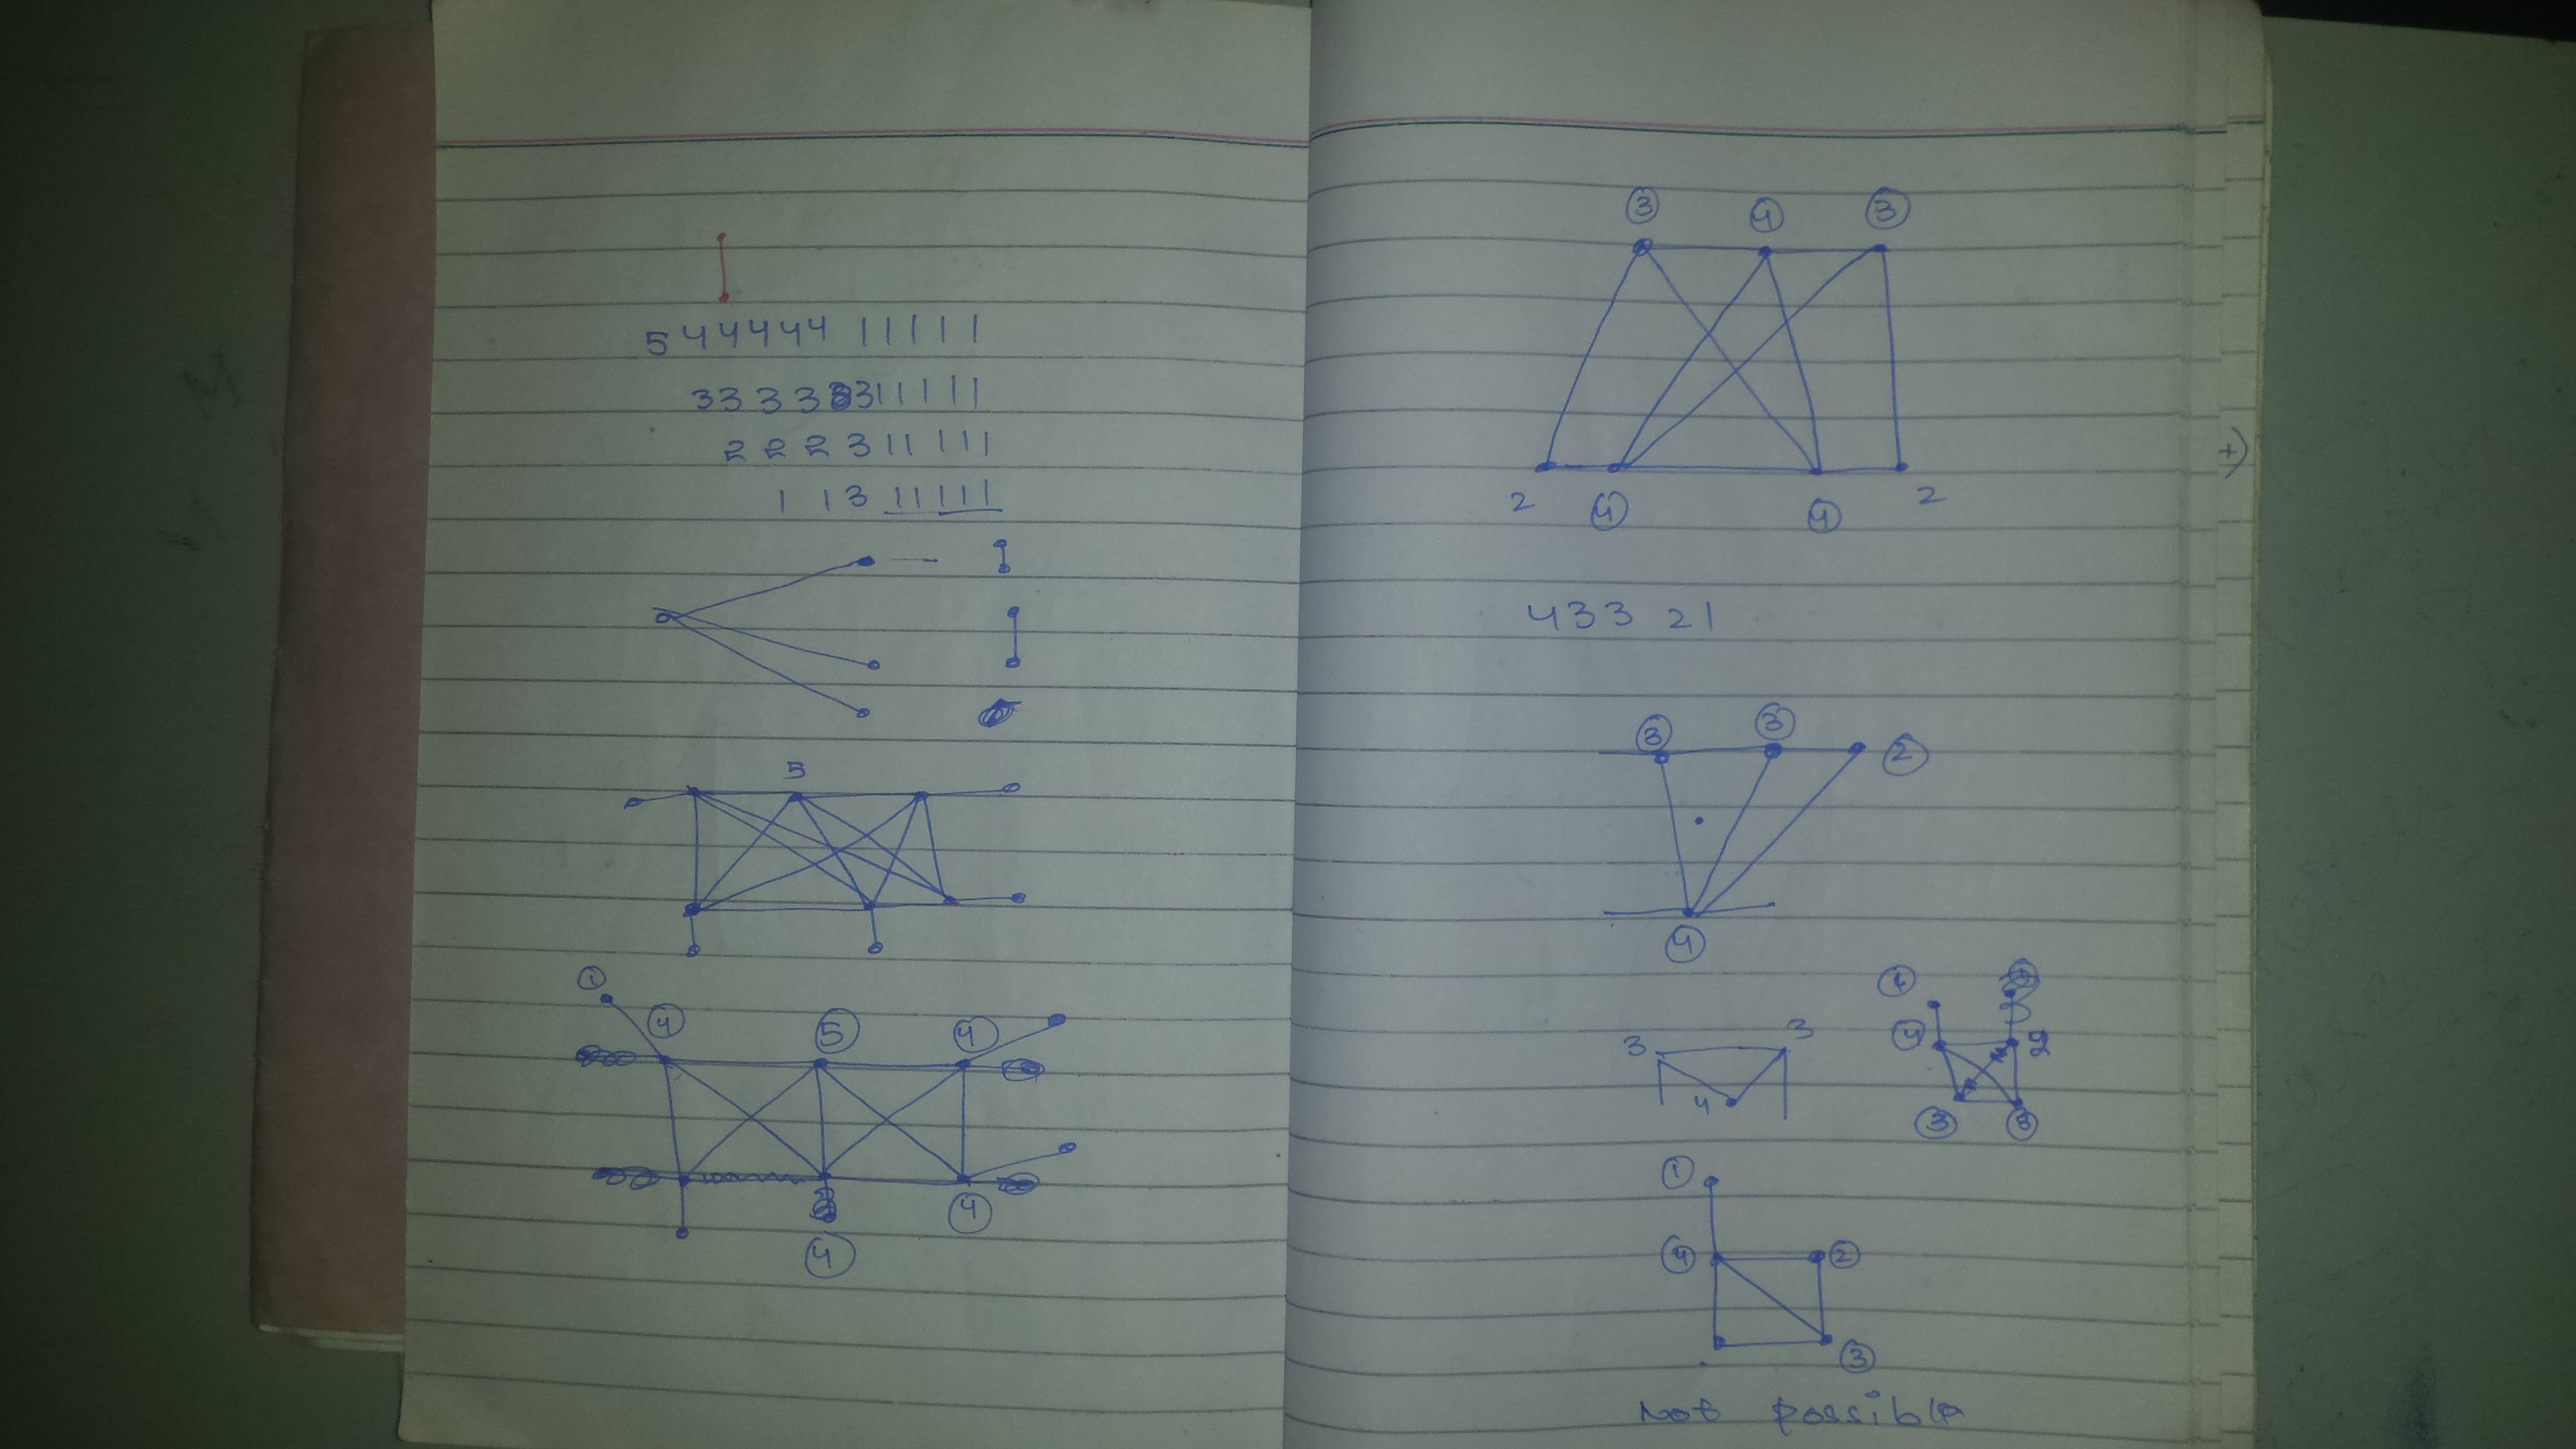 5 4 4 4 4 4 1 1 1 1 1
3 3 3 3 3 1 1 1 1 1
2 2 2 3 1 1 1 1 1
1 1 3 1 1 1 1 1
5
1
4 5 4
4
4
3 4 3
2 4 4 2
4 3 3 2 1
3 3 2
4
1
3 3 4 2
4
3 3
1
4 2
3
Not possible
+)